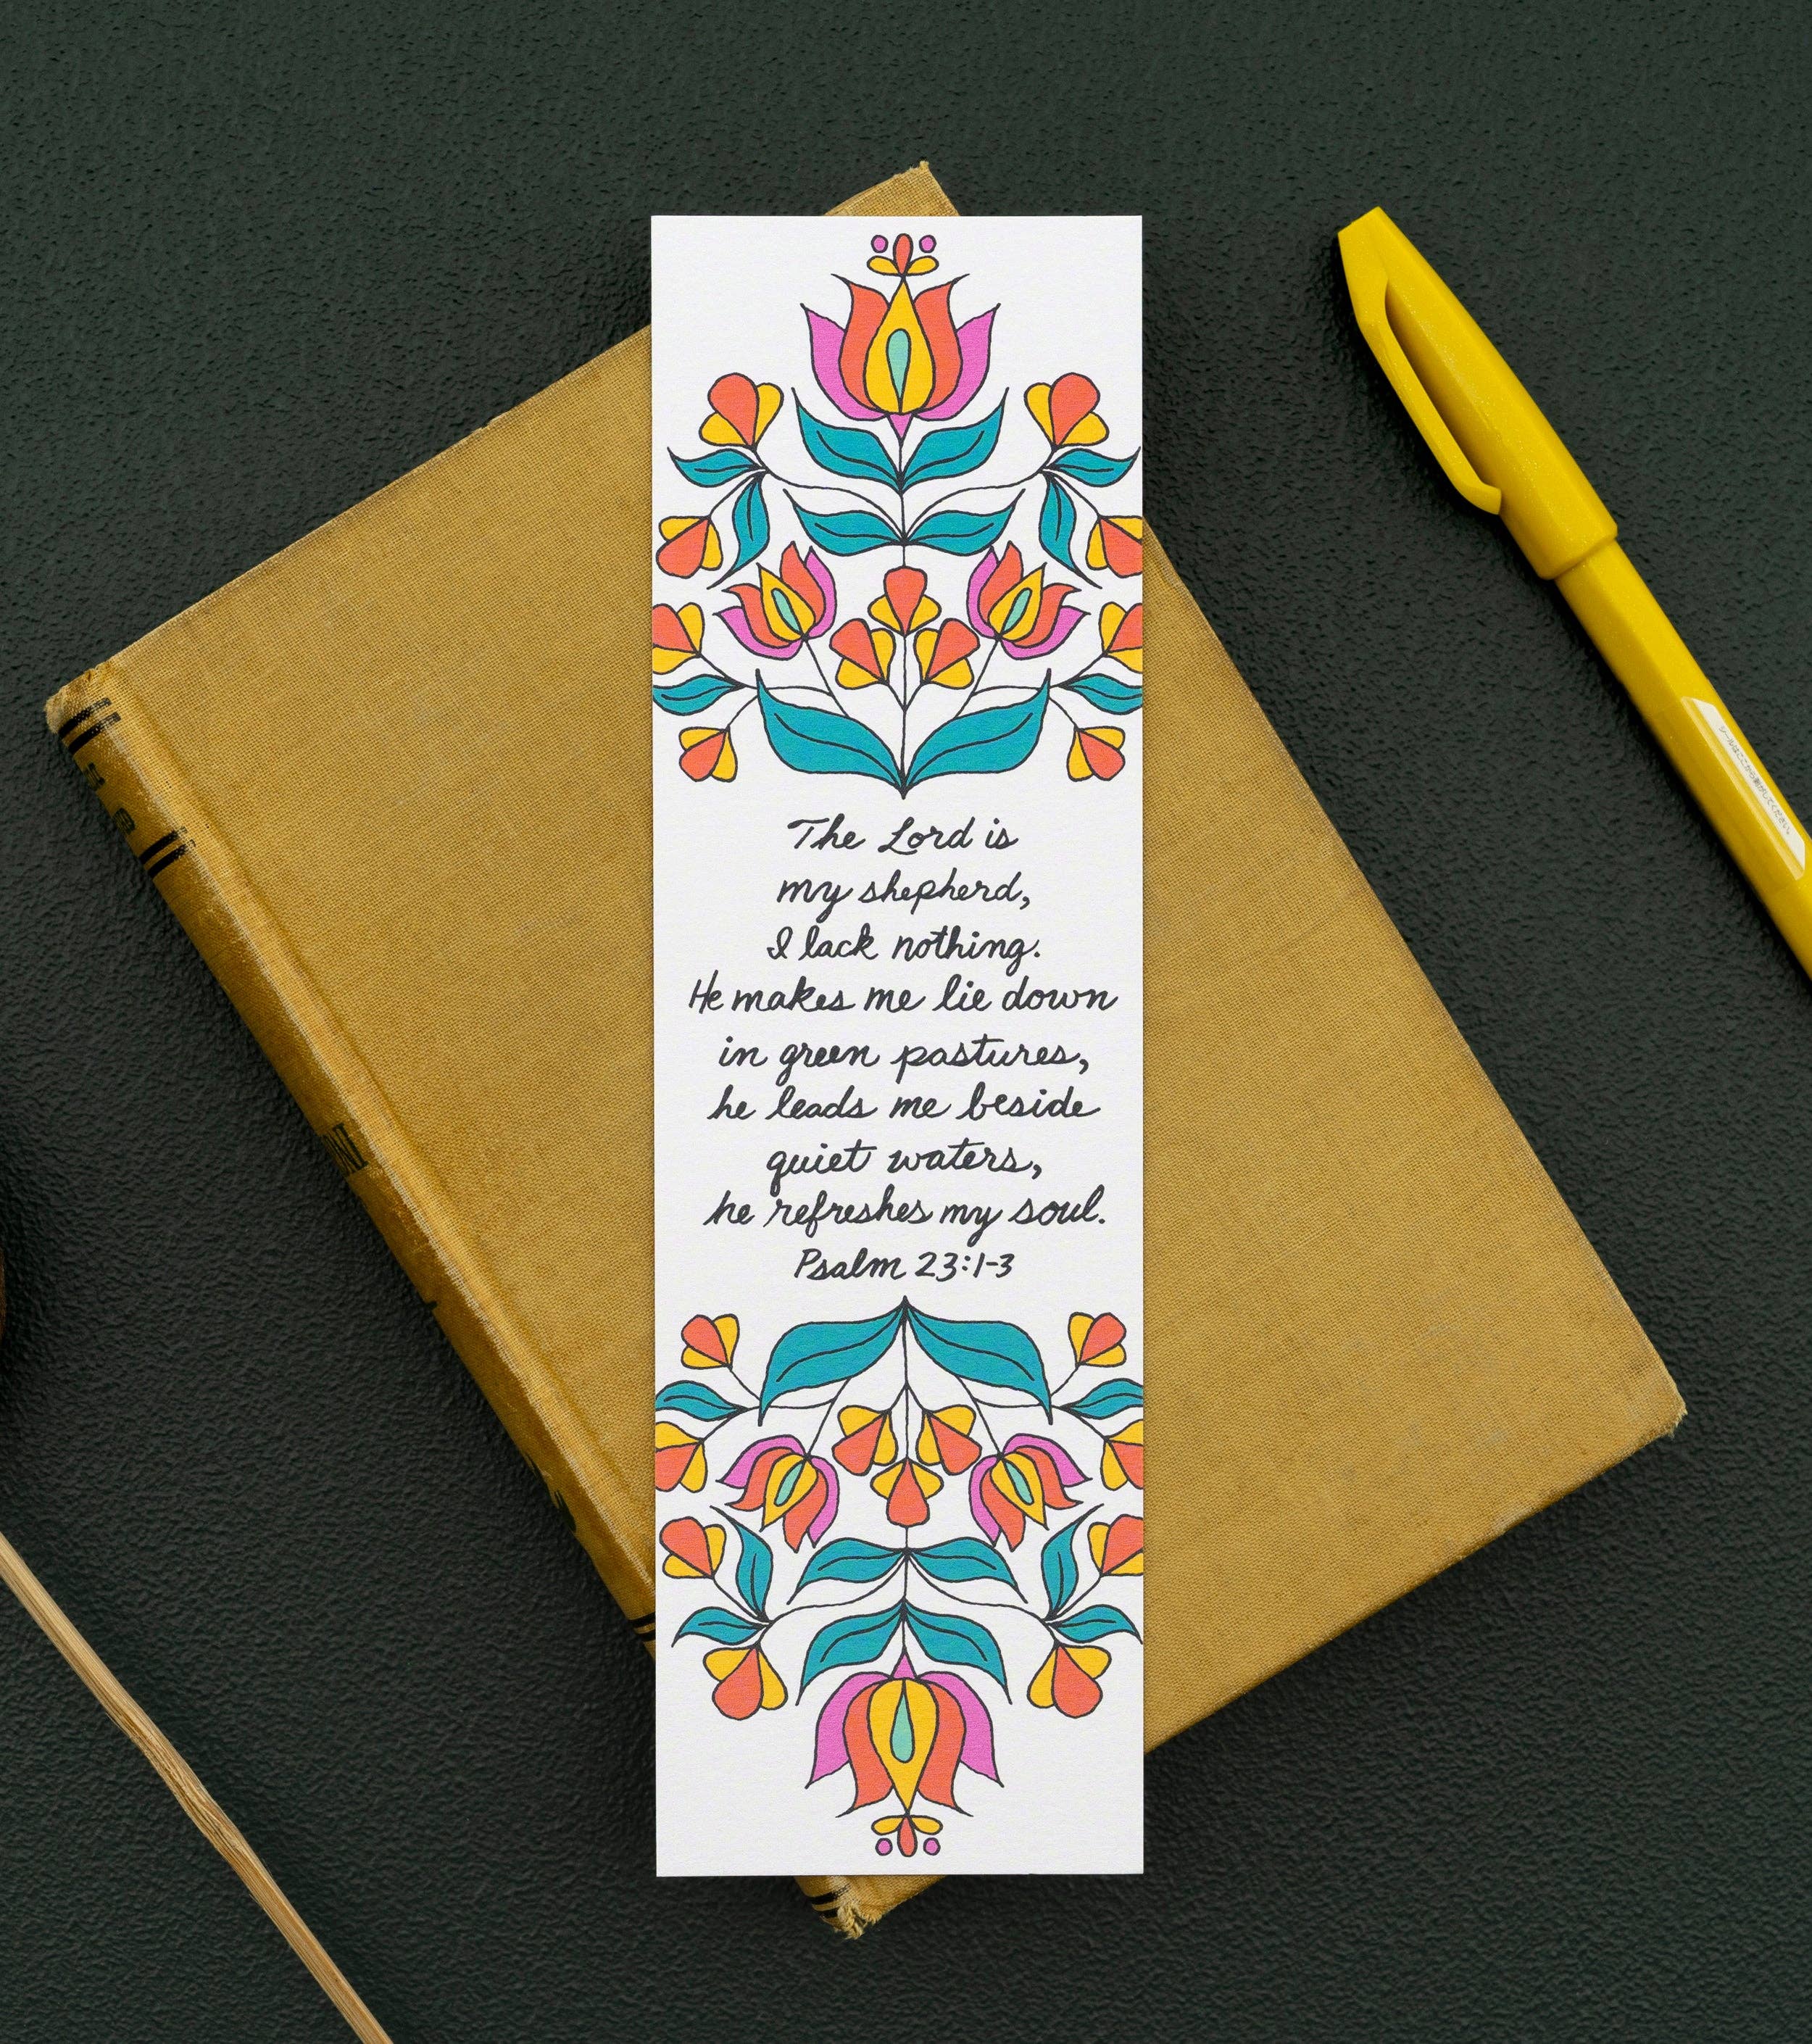 The Lord is
my shepherd,
I lack nothing.
He makes me lie down
in green pastures,
he leads me beside
quiet waters,
he refreshes my soul.
Psalm 23:1-3
シールはここから剥がしてください。